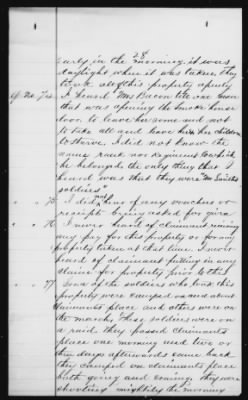 28
early in the morning, it was
daylight when it was taken. They
took all this property openly
I heard Mrs Bacon tell one man
that was opening the Smoke house
door to leave her some and not
to take all and leave her & her children
to starve. I did not know the
name rank nor regiment to which
he belonged the only thing that I
heard was that they were "Gen Smiths
soldiers"
" " 75 I did not hear of any vouchers or
receipts being asked for or given
" " 76 I never heard of claimant receiving
any pay for this property or for any
property taken at that time. I never
heard of claimant putting in any
claim for property prior to this
" " 77 Some of the soldiers who took this
property were camped on and about
claimants place and others were on
the march. These soldiers were on
a raid. They passed claimants
place one morning and two or
three days afterwards came back
they camped on claimants place
both going and coming. they were
shooting mightily the morning